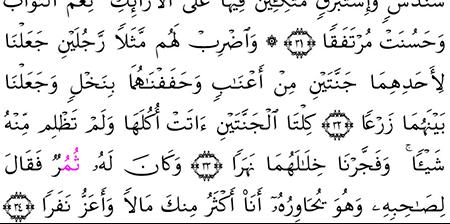 سُندُسٍ وَإِسْتَبْرَقٍ مُّتَّكِـِٔينَ فِيهَا عَلَى ٱلْأَرَآئِكِ نِعْمَ ٱلثَّوَابُ
وَحَسُنَتْ مُرْتَفَقًا ٣١ ۞ وَٱضْرِبْ لَهُم مَّثَلًا رَّجُلَيْنِ جَعَلْنَا
لِأَحَدِهِمَا جَنَّتَيْنِ مِنْ أَعْنَٰبٍ وَحَفَفْنَٰهُمَا بِنَخْلٍ وَجَعَلْنَا
بَيْنَهُمَا زَرْعًا ٣٢ كِلْتَا ٱلْجَنَّتَيْنِ ءَاتَتْ أُكُلَهَا وَلَمْ تَظْلِم مِّنْهُ
شَيْـًٔا ۚ وَفَجَّرْنَا خِلَٰلَهُمَا نَهَرًا ٣٣ وَكَانَ لَهُۥ ثُمُرٌ فَقَالَ
لِصَٰحِبِهِۦ وَهُوَ يُحَاوِرُهُۥٓ أَنَا۠ أَكْثَرُ مِنكَ مَالًا وَأَعَزُّ نَفَرًا ٣٤